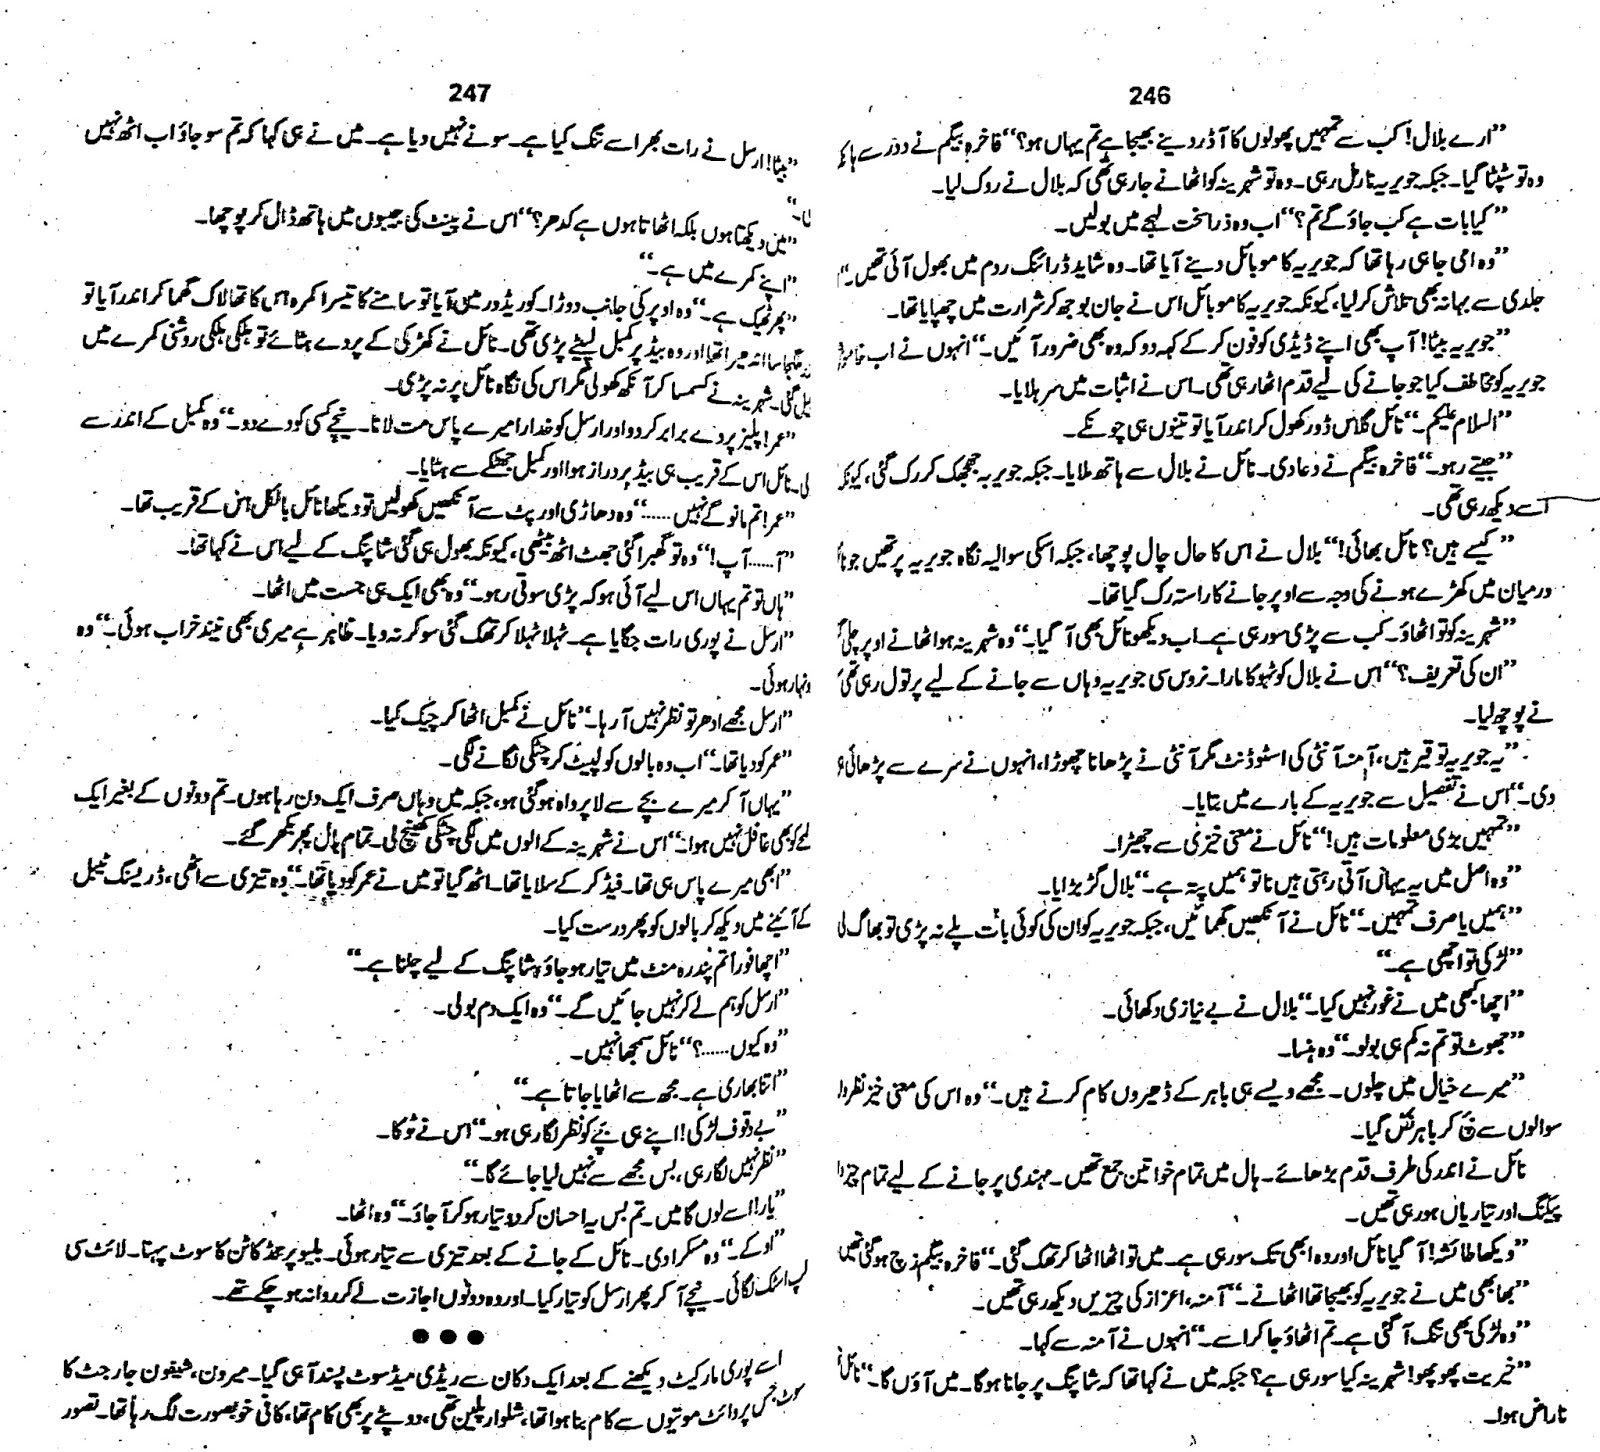 246
”ارے بلال! کب سے تمہیں پھولوں کا آڈر دینے بھیجا ہے تم یہاں ہو؟“ فاخرہ بیگم نے دور سے
وہ تو سٹپٹا گیا۔ جبکہ جویریہ نارمل رہی۔ وہ تو شہرینہ کو اٹھانے جا رہی تھی کہ بلال نے روک لیا۔
”کیا بات ہے کب جاؤ گے تم؟“ اب وہ ذرا سخت لہجے میں بولیں۔
”وہ امی جا ہی رہا تھا کہ جویریہ کا موبائل دینے آیا تھا۔ وہ شاید ڈرائنگ روم میں بھول آئی تھیں۔“
جلدی سے بہانہ بھی تلاش کر لیا، کیونکہ جویریہ کا موبائل اس نے جان بوجھ کر شرارت میں چھپایا تھا۔
”جویریہ بیٹا! آپ بھی اپنے ڈیڈی کو فون کر کے کہہ دو کہ وہ بھی ضرور آئیں۔“ انہوں نے اب
جویریہ کو مخاطف کیا جو جانے کی لیے قدم اٹھا رہی تھی۔ اس نے اثبات میں سر ہلایا۔
”السلام علیکم۔“ نائل گلاس ڈور کھول کر اندر آیا تو تینوں ہی چونکے۔
”جیتے رہو۔“ فاخرہ بیگم نے دعا دی۔ نائل نے بلال سے ہاتھ ملایا۔ جبکہ جویریہ جھجھک کر رک گئی،
اسے دیکھ رہی تھی۔
”کیسے ہیں؟ نائل بھائی!“ بلال نے اس کا حال چال پوچھا، جبکہ اسکی سوالیہ نگاہ جویریہ پر تھیں
درمیان میں کھڑے ہونے کی وجہ سے اوپر جانے کا راستہ رک گیا تھا۔
”شہرینہ کو تو اٹھاؤ۔ کب سے پڑی سو رہی ہے۔ اب دیکھو نائل بھی آ گیا۔“ وہ شہرینہ ہو اٹھانے اوپر چلی
”ان کی تعریف؟“ اس نے بلال کو ٹہوکا مارا۔ نروس سی جویریہ وہاں سے جانے کے لیے پر تول رہی تھی
نے پوچھ لیا۔
”یہ جویریہ توقیر ہیں، آمنہ آنٹی کی اسٹوڈنٹ مگر آنٹی نے پڑھانا چھوڑا، انہوں نے سرے سے پڑھائی
دی۔“ اس نے تفصیل سے جویریہ کے بارے میں بتایا۔
”تمہیں بڑی معلومات ہیں!“ نائل نے معنی خیزی سے چھیڑا۔
”وہ اصل میں یہ یہاں آتی رہتی ہیں نا تو ہمیں پتہ ہے۔“ بلال گڑبڑایا۔
”ہمیں یا صرف تمہیں۔“ نائل نے آنکھیں گھمائیں، جبکہ جویریہ کو ان کی کوئی بات پلے نہ پڑی تو بھاگ لی
”لڑکی تو اچھی ہے۔“
”اچھا کبھی میں نے غور نہیں کیا۔“ بلال نے بے نیازی دکھائی۔
”جھوٹ تو تم نہ کم ہی بولو۔“ وہ ہنسا۔
”میرے خیال میں چلوں۔ مجھے ویسے ہی باہر کے ڈھیروں کام کرنے ہیں۔“ وہ اس کی معنی خیز
سوالوں سے بچ کر باہر نکل گیا۔
نائل نے اندر کی طرف قدم بڑھائے۔ ہال میں تمام خواتین جمع تھیں۔ مہندی پر جانے کے لیے تمام
پیکنگ اور تیاریاں ہو رہی تھیں۔
”دیکھا طائشہ! آ گیا نائل اور وہ ابھی تک سو رہی ہے۔ میں تو اٹھا اٹھا کر تھک گئی۔“ فاخرہ بیگم زچ ہو گئی تھیں
”بھابھی میں نے جویریہ کو بھیجا تھا اٹھانے۔“ آمنہ، اعزاز کی چیزیں دیکھ رہی تھیں۔
”وہ لڑکی بھی تنگ آ گئی ہے۔ تم اٹھاؤ جا کر اسے۔“ انہوں نے آمنہ سے کہا۔
”خیریت پھوپھو! شہرینہ کیا سو رہی ہے؟ جبکہ میں نے کہا تھا کہ شاپنگ پر جانا ہوگا۔ میں آؤں گا۔“
ناراض ہوا۔
247
”بیٹا! ارسل نے رات بھر اسے تنگ کیا ہے۔ سونے نہیں دیا ہے۔ میں نے ہی کہا کہ تم سو جاؤ اب اٹھ نہیں
”میں دیکھتا ہوں بلکہ اٹھاتا ہوں ہے کدھر؟“ اس نے پینٹ کی جیبوں میں ہاتھ ڈال کر پوچھا۔
”اپنے کمرے میں ہے۔“
”پھر ٹھیک ہے۔“ وہ اوپر کی جانب دوڑا۔ کوریڈور میں آیا تو سامنے کا تیسرا کمرہ اس کا تھا لاک گھما کر اندر آیا تو
اندھیرا تھا اور وہ بیڈ پر کمبل لپیٹے پڑی تھی۔ نائل نے کھڑکی کے پردے ہٹائے تو ہلکی ہلکی روشنی کمرے میں
گئی۔ شہرینہ نے کسمسا کر آنکھ کھولی مگر اس کی نگاہ نائل پر نہ پڑی۔
”عمر! پلیز پردے برابر کر دو اور ارسل کو خدارا میرے پاس مت لانا۔ نیچے کسی کو دے دو۔“ وہ کمبل کے اندر سے
لی۔ نائل اس کے قریب ہی بیڈ پر دراز ہوا اور کمبل جھٹکے سے ہٹایا۔
”عمر! تم مانو گے نہیں......“ وہ دھاڑی اور پٹ سے آنکھیں کھولیں تو دیکھا نائل بالکل اس کے قریب تھا۔
”آ......آپ!“ وہ تو گھبرا گئی جھٹ اٹھ بیٹھی، کیونکہ بھول ہی گئی شاپنگ کے لیے اس نے کہا تھا۔
”ہاں تو تم یہاں اس لیے آئی ہو کہ پڑی سوتی رہو۔“ وہ بھی ایک ہی جست میں اٹھا۔
”ارسل نے پوری رات جگایا ہے۔ ٹہلا ٹہلا کر تھک گئی سو کر نہ دیا۔ ظاہر ہے میری بھی نیند خراب ہوئی۔“ وہ
ہوئی۔
”ارسل مجھے ادھر تو نظر نہیں آ رہا۔“ نائل نے کمبل اٹھا کر چیک کیا۔
”عمر کو دیا تھا۔“ اب وہ بالوں کو لپیٹ کر چٹکی لگانے لگی۔
”یہاں آ کر میرے بچے سے لا پرواہ ہو گئی ہو، جبکہ میں وہاں صرف ایک دن رہا ہوں۔ تم دونوں کے بغیر ایک
لمحے کو بھی غافل نہیں ہوا۔“ اس نے شہرینہ کے الوں میں لگی چٹکی کھینچ لی۔ تمام بال پھر بکھر گئے۔
”ابھی میرے پاس ہی تھا۔ فیڈ کر کے سلایا تھا۔ اٹھ گیا تو میں نے عمر کو دیا تھا۔“ وہ تیزی سے اٹھی، ڈریسنگ ٹیبل
کے آئینے میں دیکھ کر بالوں کو پھر درست کیا۔
”اچھا فوراً تم پندرہ منٹ میں تیار ہو جاؤ شاپنگ کے لیے چلنا ہے۔“
”ارسل کو ہم لے کر نہیں جائیں گے۔“ وہ ایک دم بولی۔
”وہ کیوں......؟“ نائل سمجھا نہیں۔
”اتنا بھاری ہے۔ مجھ سے اٹھایا جاتا ہے۔“
”بے وقوف لڑکی! اپنے ہی بچے کو نظر لگا رہی ہو۔“ اس نے ٹوکا۔
”نظر نہیں لگا رہی، بس مجھے سے نہیں لیا جائے گا۔“
”یار! اسے لوں گا میں۔ تم بس یہ احسان کر دو تیار ہو کر آ جاؤ۔“ وہ اٹھا۔
”اوکے۔“ وہ مسکرا دی۔ نائل کے جانے کے بعد تیزی سے تیار ہوئی۔ بلیو پرنٹڈ کاٹن کا سوٹ پہنا۔ لائٹ سی
لپ اسٹک لگائی۔ نیچے آ کر پھر ارسل کو تیار کیا۔ اور وہ دونوں اجازت لے کر روانہ ہو چکے تھے۔
● ● ●
اسے پوری مارکیٹ دیکھنے کے بعد ایک دکان سے ریڈی میڈ سوٹ پسند آ ہی گیا۔ میرون، شیفون جارجٹ کا
سوٹ جس پر وائٹ موتیوں سے کام بنا ہوا تھا، شلوار پلین تھی، دوپٹے پر بھی کام تھا، کافی خوبصورت لگ رہا تھا۔ تصور